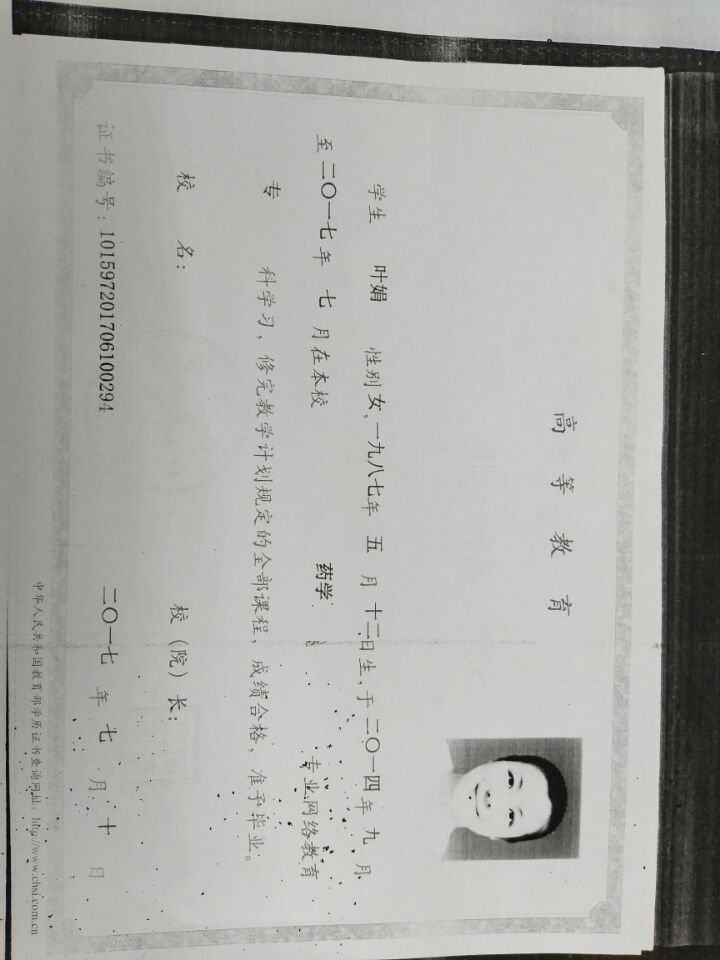 高等教育
学生 叶娟 性别女，一九八七年 五 月 十二日生，于 二〇一四年 九 月
至 二〇一七年 七 月在本校 药学 专业网络教育
专 科学习，修完教学计划规定的全部课程，成绩合格，准予毕业。
校 名： 校（院）长：
证书编号：101597201706100294 二〇一七 年 七 月 十 日
中华人民共和国教育部学历证书查询网址：http://www.chsi.com.cn